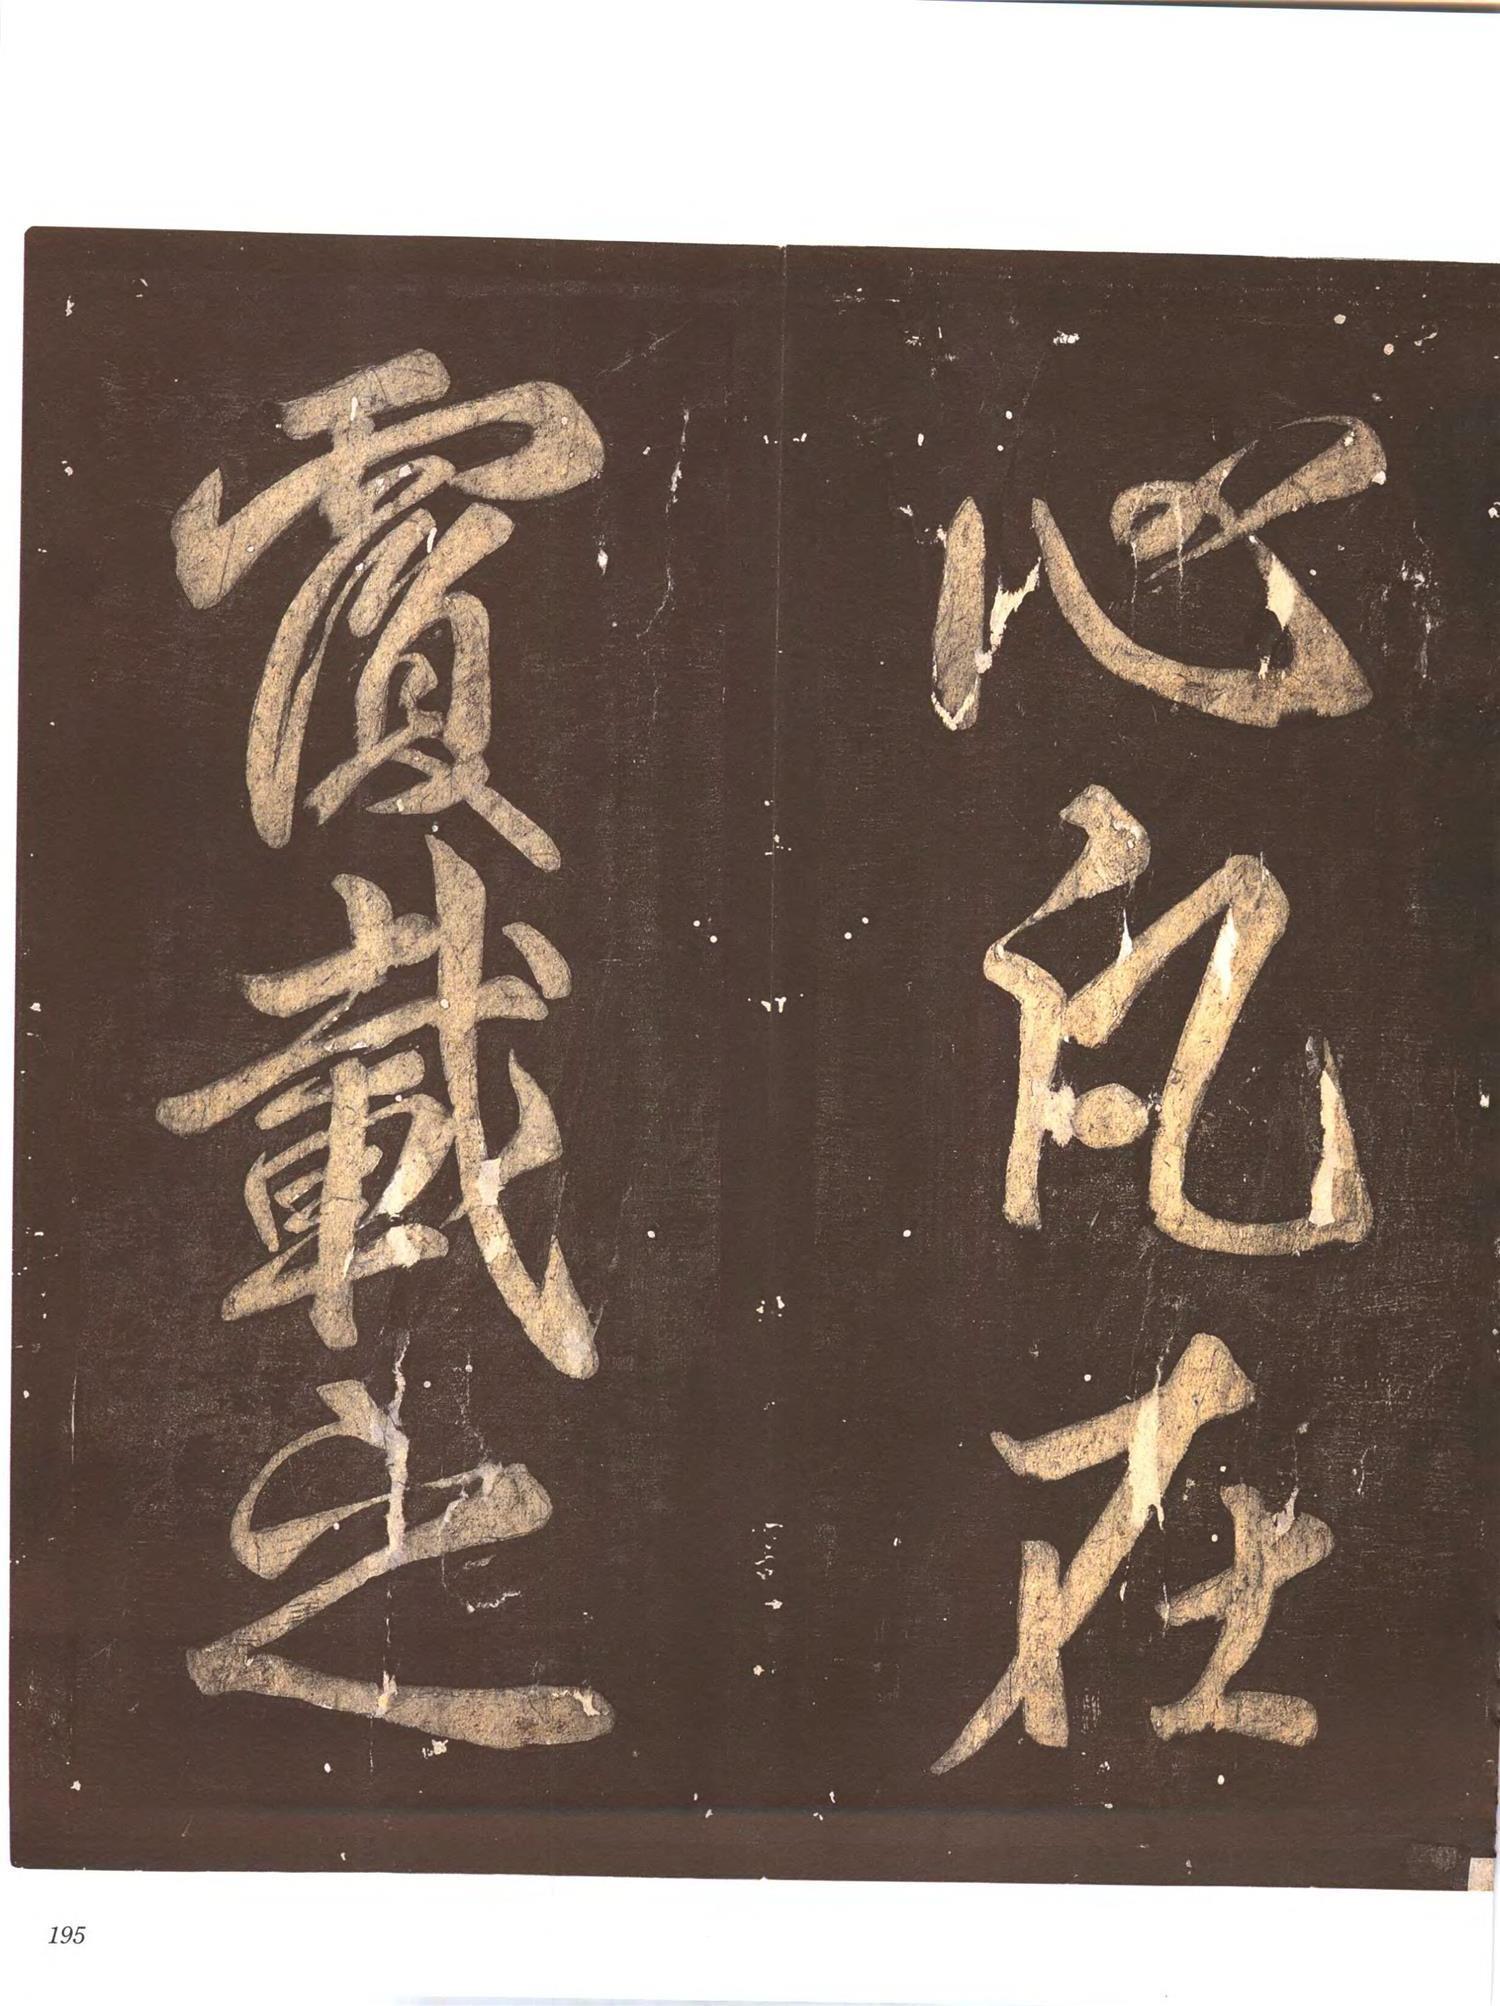 心凡在
覆載之
195